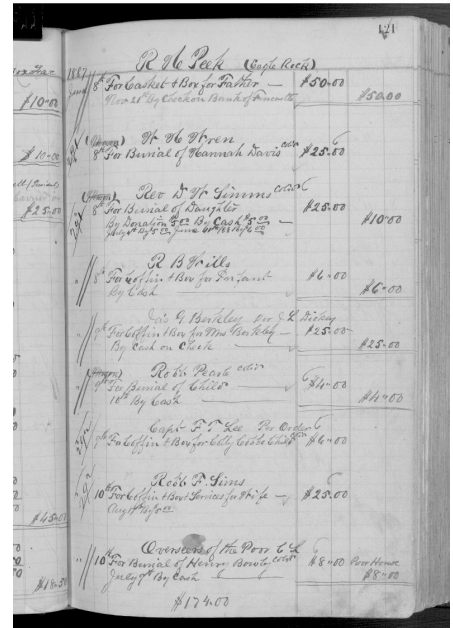 121
R W Peek (Eagle Rock)
1887
June 8th For Casket & Box for Father — $50.00
Nov 21st By Check on Bank of Fincastle $50.00
$10.00
W W Wren
8th For Burial of Hannah Davis cold $25.00
$10.00
Rev D W Simms cold
8th For Burial of Daughter $25.00
By Donation $5.00 By Cash $5.00 — $10.00
$25.00
R B Wills
8th For Coffin & Box for Infant $6.00
By Cash $6.00
Jas G Berkley
9th For Coffin & Box for Mrs Berkley — $25.00
By Cash on Check — $25.00
Robt cold
9th For Burial of Child — $4.00
10th By Cash $4.00
Capt F T Lee Per Order
9th For Coffin & Box for Child $6.00
Robt F. Sims
10th For Coffin & Box & Services for Wife — $25.00
$45.00
Overseers of the Poor
10th For Burial of Henry cold $8.00 Poor House
July 9th By Cash $8.00
$18.50
$174.00